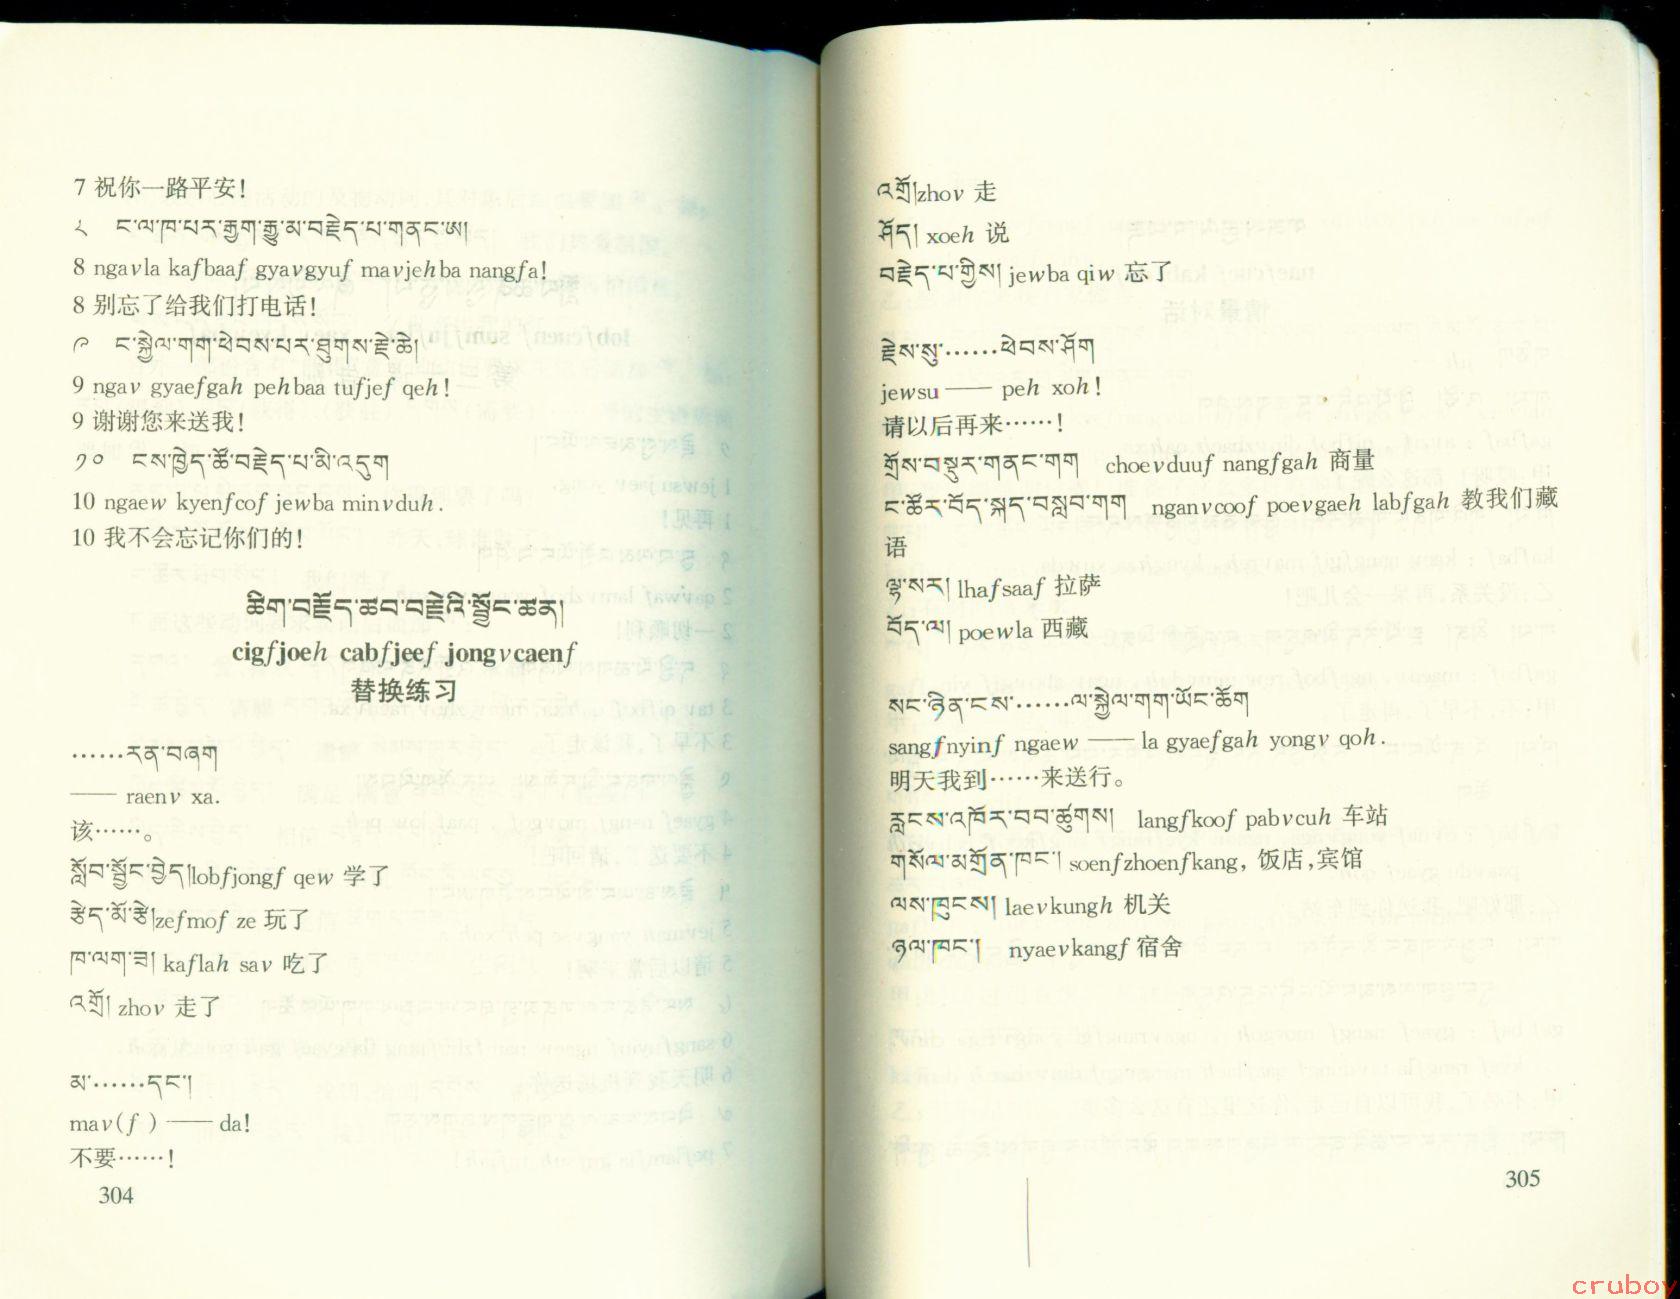 7 祝你一路平安!
༨ ང་ལ་ཁ་པར་རྒྱག་རྒྱུ་མ་བརྗེད་པ་གནང་ཨ།
8 ngavla kafbaaf gyavgyuf mavjehba nangfa!
8 别忘了给我们打电话!
༩ ང་སྐྱེལ་གག་ཕེབས་པར་ཐུགས་རྗེ་ཆེ།
9 ngav gyaefgah pehbaa tufjef qeh!
9 谢谢您来送我!
༡༠ ངས་ཁྱེད་ཚོ་བརྗེད་པ་མི་འདུག
10 ngaew kyenfcof jewba minvduh.
10 我不会忘记你们的!
ཚིག་བརྗོད་ཚབ་བརྗེའི་སྦྱོང་ཚན།
cigfjoeh cabfjeef jongvcaenf
替换练习
……རན་བཞག
—— raenv xa.
该……。
སློབ་སྦྱོང་བྱེད།lobfjongf qew 学了
རྩེད་མོ་རྩེ།zefmof ze 玩了
ཁ་ལག་ཟ། kaflah sav 吃了
འགྲོ། zhov 走了
མ་……དང་།
mav(f) —— da!
不要……!
304
འགྲོ།zhov 走
ཤོད། xoeh 说
བརྗེད་པ་གྱིས། jewba qiw 忘了
རྗེས་སུ་……ཕེབས་ཤོག
jewsu —— peh xoh!
请以后再来……!
གྲོས་བསྡུར་གནང་གག choevduuf nangfgah 商量
ང་ཚོར་བོད་སྐད་བསླབ་གག nganvcoof poevgaeh labfgah 教我们藏
语
ལྷ་སར། lhafsaaf 拉萨
བོད་ལ། poewla 西藏
སང་ཉིན་ངས་……ལ་སྐྱེལ་གག་ཡོང་ཆོག
sangfnyinf ngaew —— la gyaefgah yongv qoh.
明天我到……来送行。
རླངས་འཁོར་བབ་ཚུགས། langfkoof pabvcuh 车站
གསོལ་མགྲོན་ཁང་། soenfzhoenfkang, 饭店,宾馆
ལས་ཁུངས། laevkungh 机关
ཉལ་ཁང་། nyaevkangf 宿舍
305
cruboy